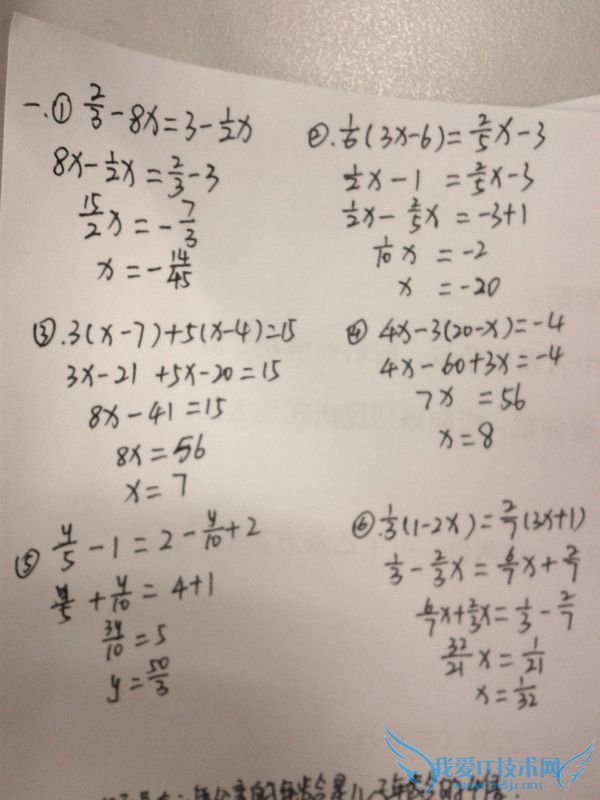 一.① 2/3 - 8x = 3 - 1/2x
8x - 1/2x = 2/3 - 3
15/2 x = - 7/3
x = - 14/45
②. 1/6 (3x-6) = 2/5 x - 3
1/2 x - 1 = 2/5 x - 3
1/2 x - 2/5 x = -3+1
1/10 x = -2
x = -20
③. 3(x-7)+5(x-4)=15
3x-21 +5x-20=15
8x-41=15
8x=56
x=7
④ 4x-3(20-x)=-4
4x-60+3x=-4
7x =56
x=8
⑤ y/5 - 1 = 2 - y/10 + 2
y/5 + y/10 = 4+1
3y/10 = 5
y = 50/3
⑥. 1/3 (1-2x) = 2/7 (3x+1)
1/3 - 2/3 x = 6/7 x + 2/7
6/7 x + 2/3 x = 1/3 - 2/7
32/21 x = 1/21
x = 1/32
我爱IT技术网